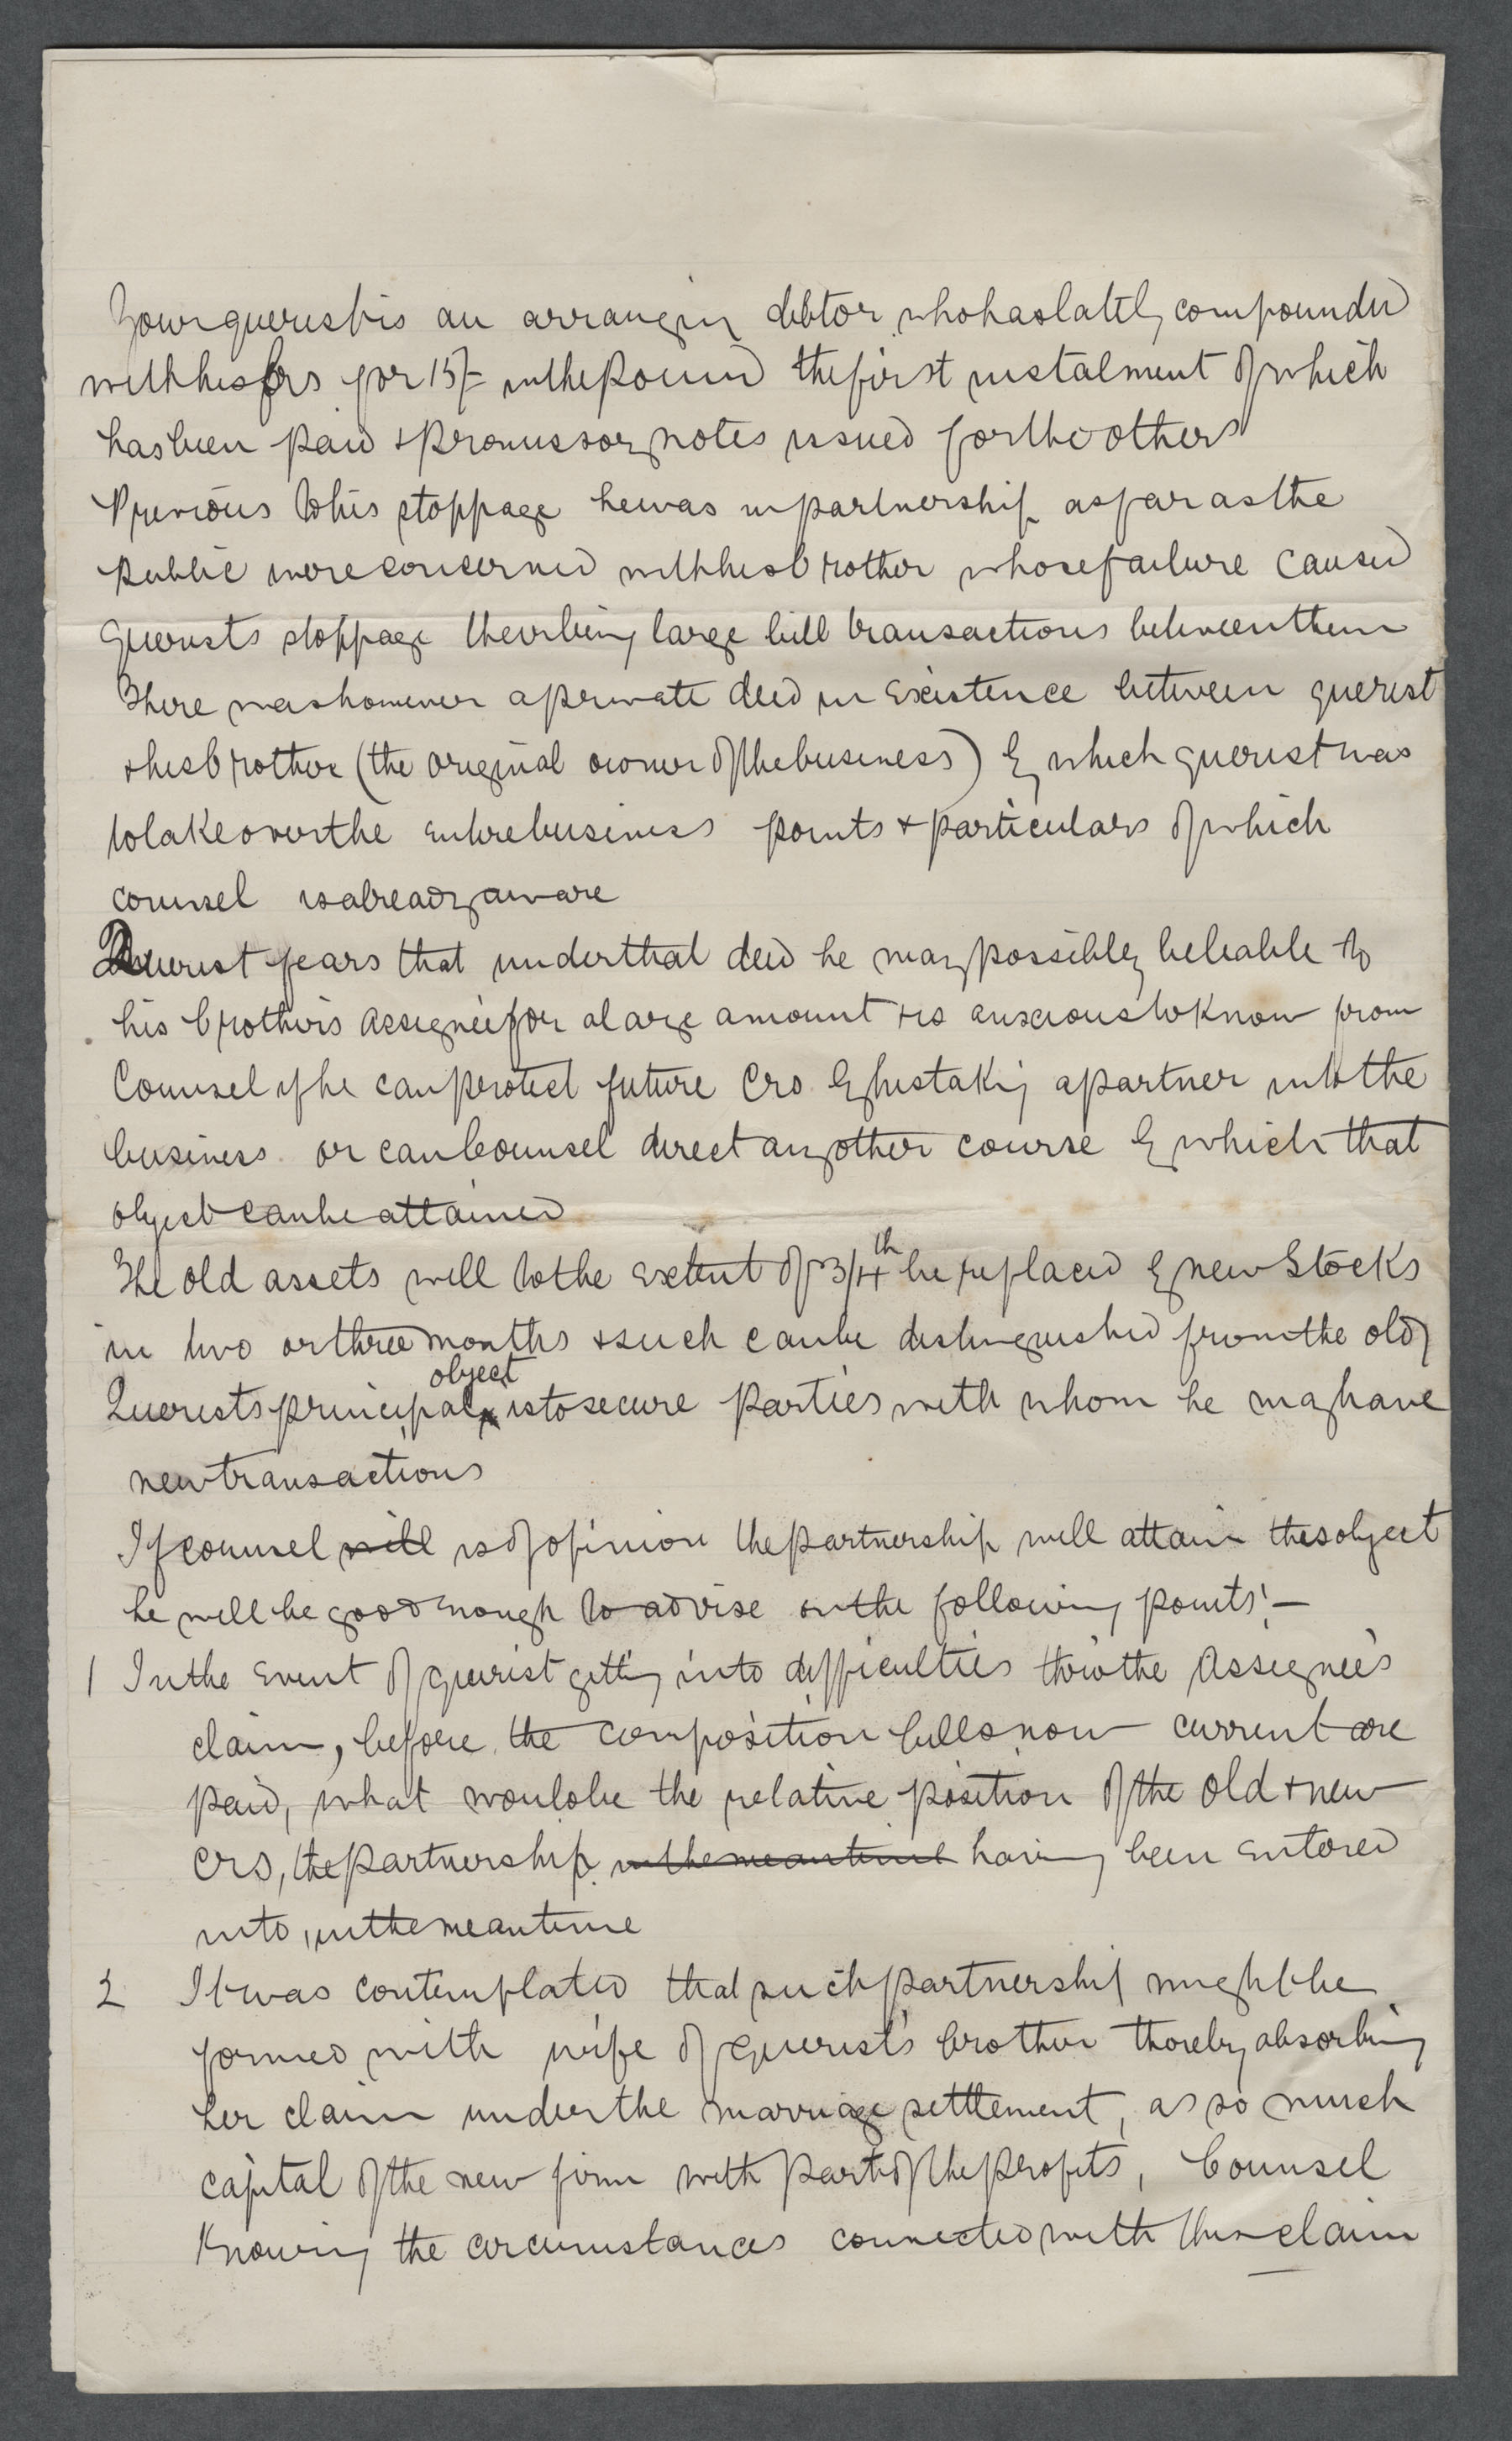 Your querist is an arranging debtor who has lately compounded
with his Crs for 15/- in the Pound the first instalment of which
has been paid & promissory notes issued for the others
Previous to his stoppage he was in partnership as far as the
public were concerned with his brother whose failure caused
querists stoppage their being large bill transactions between them
There was however a private deed in existence between querist
& his brother (the original owner of the business) by which querist was
to take over the entire business points & particulars of which
counsel is already aware
Querist fears that under that deed he may possibly be liable to
his brothers assignee for a large amount & is anxious to know from
Counsel if he can protect future Crs by his taking a partner into the
business or can Counsel direct any other course by which that
object can be attained
The old assets will to the extent of 3/4th be replaced by new Stocks
in two or three months & such can be distinguished from the old
Querists principal object is to secure parties with whom he may have
new transactions
If counsel will is of opinion the partnership will attain this object
he will be good enough to advise on the following points:—
1 In the event of querist getting into difficulties thro' the Assignees
claim, before the composition bills now current are
paid, what would be the relative position of the old & new
Crs, the partnership in the meantime having been entered
into, in the meantime
2 It was contemplated that such partnership might be
formed with wife of querist's brother thereby absorbing
her claim under the marriage settlement, as so much
capital of the new firm with part of the profits, Counsel
Knowing the circumstances connected with this claim